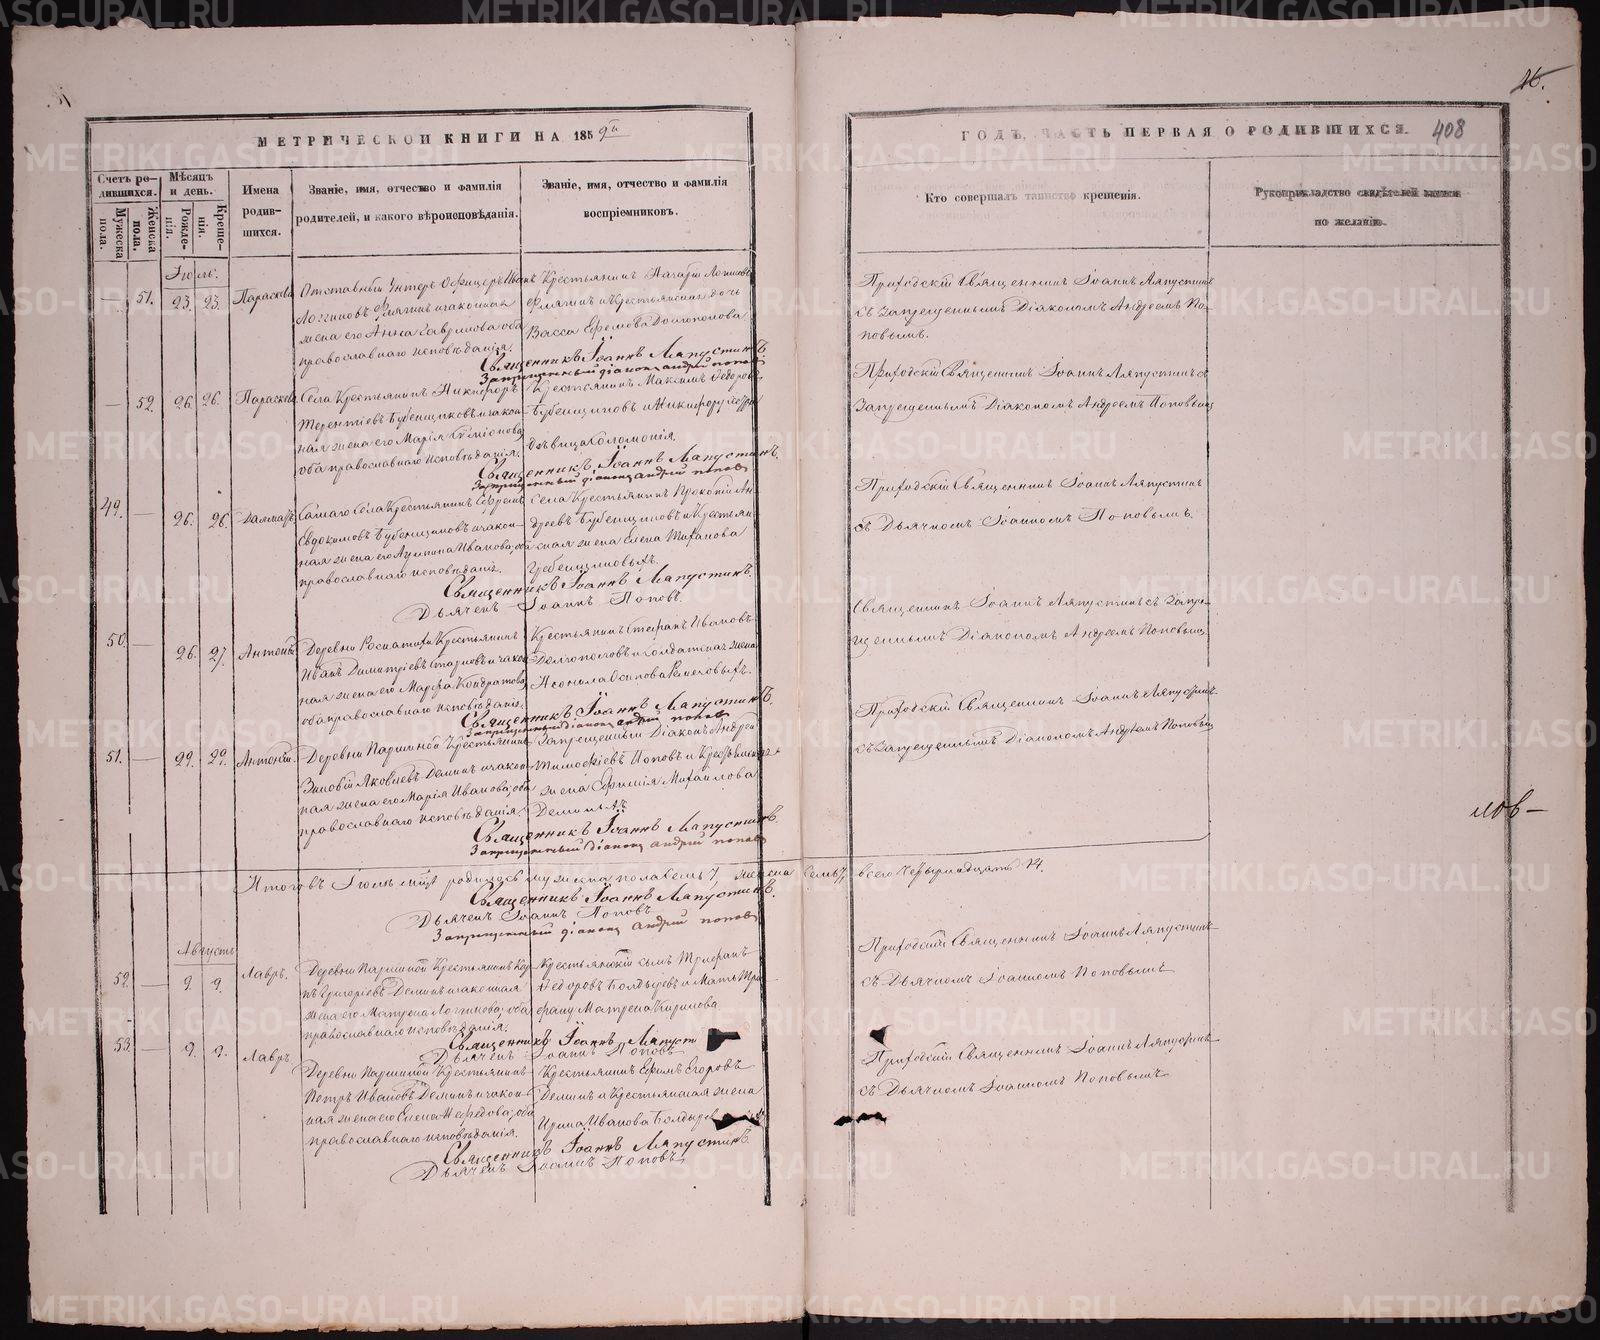 МЕТРИЧЕСКОЙ КНИГИ НА 1859й
ГОДЪ, ЧАСТЬ ПЕРВАЯ О РОДИВШИХСЯ.
408
Счетъ ро-
дившихся.
Мужеска пола.
Женска пола.
Мѣсяцъ и день.
Рожденія.
Крещенія.
Имена
родив-
шихся.
Званіе, имя, отчество и фамилія
родителей, и какого вѣроисповѣданія.
Званіе, имя, отчество и фамилія
воспріемниковъ.
Кто совершалъ таинство крещенія.
Рукоприкладство свидѣтелей записи
по желанію.
Іюль.
51. 23. 23. Параскева
Отставный Унтеръ Офицеръ Иванъ
Логгиновъ и законная
жена его Анна Гаврилова оба
православнаго исповѣданія.
Крестьянинъ
и крестьянская дочь
Васса Ефимова Долгополова
Приходскій Священникъ Іоаннъ Ляпустинъ
съ запрещеннымъ Діакономъ Андреемъ По-
повымъ.
Священникъ Іоаннъ Ляпустинъ
Запрещенный діаконъ андрей поповъ
52. 26. 26. Параскева
Села Крестьянинъ Никифоръ
Терентіевъ Бубенщиковъ и закон-
ная жена его Марія
оба православнаго исповѣданія.
Крестьянинъ Максимъ Ѳедоровъ
Бубенщиковъ
дѣвица Соломонія.
Приходскій Священникъ Іоаннъ Ляпустинъ съ
Запрещеннымъ Діакономъ Андреемъ Поповымъ
Священникъ Іоаннъ Ляпустинъ.
Запрещенный діаконъ андрей поповъ
49. 26. 26.
Самаго Села Крестьянинъ Ефремъ
Евдокимовъ Бубенщиковъ и закон-
ная жена его Акулина Иванова, оба
православнаго исповѣданія.
Села Крестьянинъ Прокопій Ан-
дреевъ Бубенщиковъ и Крестьян-
ская жена Елена
Приходскій Священникъ Іоаннъ Ляпустинъ
съ Дьячкомъ Іоанномъ Поповымъ.
Священникъ Іоаннъ Ляпустинъ.
Дьячекъ Іоаннъ Поповъ.
50. 26. 27. Антоній
Деревни Крестьянинъ
Иванъ Димитріевъ и закон-
ная жена его Марѳа Кондратова,
оба православнаго исповѣданія.
Крестьянинъ Стефанъ Ивановъ
Долгополовъ и Солдатская жена
Осипова
Священникъ Іоаннъ Ляпустинъ съ Запре-
щеннымъ Діакономъ Андреемъ Поповымъ
Священникъ Іоаннъ Ляпустинъ.
Запрещенный діаконъ андрей поповъ
51. 29. 29. Антоній
Деревни Паршиной Крестьянинъ
Зиновій Яковлевъ Деминъ и закон-
ная жена его Марія Иванова, оба
православнаго исповѣданія.
Запрещенный Діаконъ Андрей
Тимоѳіевъ Поповъ и Крестьянская
жена Михайлова
Деминыхъ
Приходскій Священникъ Іоаннъ Ляпустинъ
съ Запрещеннымъ Діакономъ Андреемъ Поповымъ
Священникъ Іоаннъ Ляпустинъ.
Запрещенный діаконъ андрей поповъ
Итого въ Іюлѣ мѣсяцѣ родилось мужеска пола семь 7, женска семь 7, всего четырнадцать 14.
Священникъ Іоаннъ Ляпустинъ.
Дьячекъ Іоаннъ Поповъ
Запрещенный діаконъ андрей поповъ
Августъ
52. 9. 9. Лавръ.
Деревни Паршиной Крестьянинъ Кар-
пъ Григоріевъ Деминъ и законная
жена его Матрена Логинова, оба
православнаго исповѣданія.
Крестьянскій сынъ
Ѳедоровъ Болдыревъ и
Матрена Кирилова
Приходскій Священникъ Іоаннъ Ляпустинъ
съ Дьячкомъ Іоанномъ Поповымъ
Священникъ Іоаннъ Ляпуст
Дьячекъ Іоаннъ Поповъ
53. 9. 9. Лавръ
Деревни Паршиной Крестьянинъ
Петръ Ивановъ Деминъ и закон-
ная жена его Елена Меѳедова, оба
православнаго исповѣданія.
Крестьянинъ Ефимъ Егоровъ
Деминъ и Крестьянская жена
Ирина Иванова Болдыре
Приходскій Священникъ Іоаннъ Ляпустинъ
съ Дьячкомъ Іоанномъ Поповымъ
Священникъ Іоаннъ Ляпустинъ.
Дьячекъ Іоаннъ Поповъ
лов-
METRIKI.GASO-URAL.RU